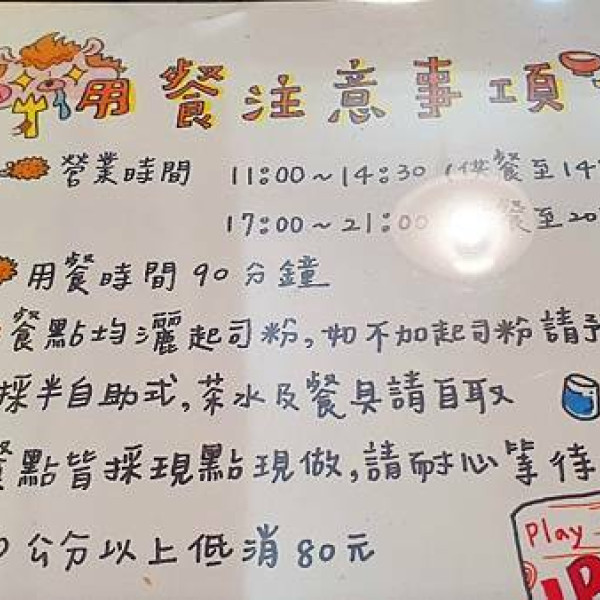 用餐注意事項
營業時間 11:00~14:30 (供餐至14
17:00~21:00 餐至20
用餐時間90分鐘
餐點均灑起司粉,如不加起司粉請予
採半自助式,茶水及餐具請自取
餐點皆採現點現做,請耐心等待
0公分以上低消80元
Play